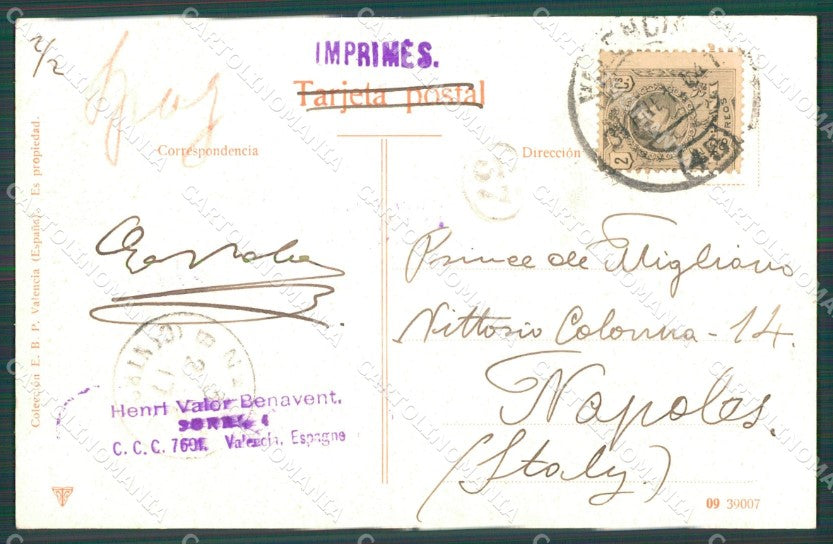 IMPRIMÉS.
Tarjeta postal
Correspondencia
Dirección
VALENCIA
2
Prince de Migliano
Vittorio Colonna - 14.
Napoles.
(Italy.)
Henri Valor Benavent.
C. C. C. 7601. Valencia, Espagne
Colección E. B. P. Valencia (España). Es propiedad.
09 39007
CARTOLINOMANIA